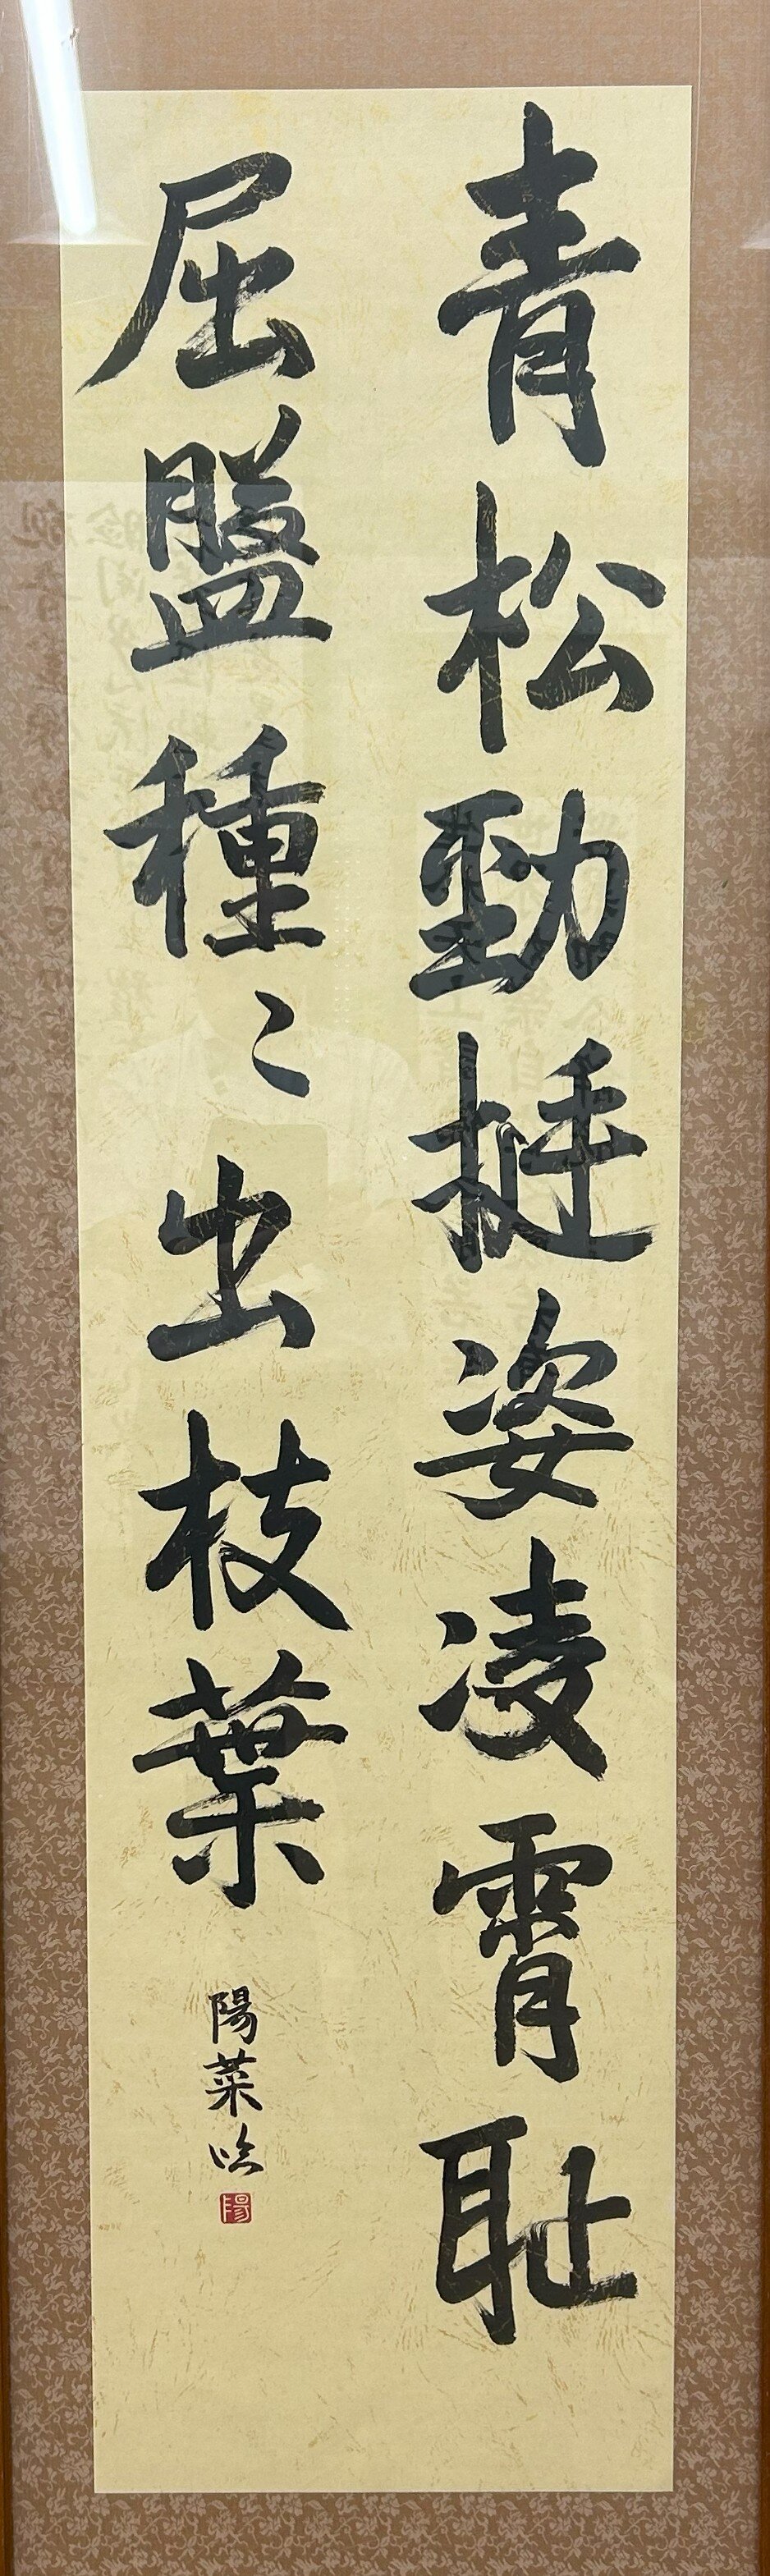 青松勁挺姿凌霄耻
屈盤種〻出枝葉
陽菜臨
陽